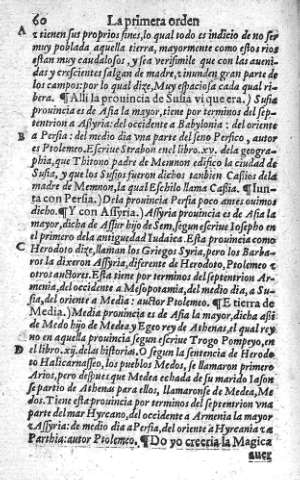 60 La primera orden
A z tienen sus proprios fines, lo qual todo es indicio de no ser
muy poblada aquella tierra, mayormente como estos rios
estan muy caudalosos, y sea verisimile que con las aueni-
das y crescientes salgan de madre, z inunden gran parte de
los campos: por lo qual dize, Muy espaciosa cada qual ri-
bera. ¶ Alli la prouincia de Susia vi que era.) Susia
prouincia es de Asia la mayor, tiene por terminos del septen-
trion a Assyria: del occidente a Babylonia: del oriente
B a Persia: del medio dia vna parte del seno Persico, autor
es Ptolemeo. Escriue Strabon en el libro .xv. dela geogra-
phia, que Thitono padre de Memnon edifico la ciudad de
Susia, y que los Susios fueron dichos tanbien Cassios dela
madre de Memnon, la qual Eschilo llama Cassia. ¶ Iun-
ta con Persia.) Dela prouincia Persia poco antes ouimos
dicho. ¶ Y con Assyria.) Assyria prouincia es de Asia la
mayor, dicha de Assur hijo de Sem, segun escriue Iosepho en
el primero dela antiguedad Iudaica. Esta prouincia como
C Herodoto dize, llaman los Griegos Syria, pero los Barba-
ros la dizeron Assyria, diferente de Herodoto, Ptolemeo z
otros auctores. Esta tiene por terminos del septentrion Ar-
menia, del occidente a Mesopotamia, del medio dia, a Su-
sia, del oriente a Media: auctor Ptolemeo. ¶ E tierra de
Media.) Media prouincia es de Asia la mayor, dicha assi
de Medo hijo de Medea, y Egeo rey de Athenas, el qual rey
no en aquella prouincia segun escriue Trogo Pompeyo, en
D el libro .xij. de las historias. O segun la sentencia de Herodo
to Halicarnasseo, los pueblos Medos, se llamaron primero
Arios, pero despues que Medea echada de su marido Iason
se partio de Athenas para ellos, llamaronse de Medea, Me
dos. Tiene esta prouincia por terminos del septentrion vna
parte del mar Hyrcano, del occidente a Armenia la mayor
z Assyria: de medio dia a Persia, del oriente a Hyrcania z a
Parthia: autor Ptolemeo. ¶ Do yo creeria la Magica
auer